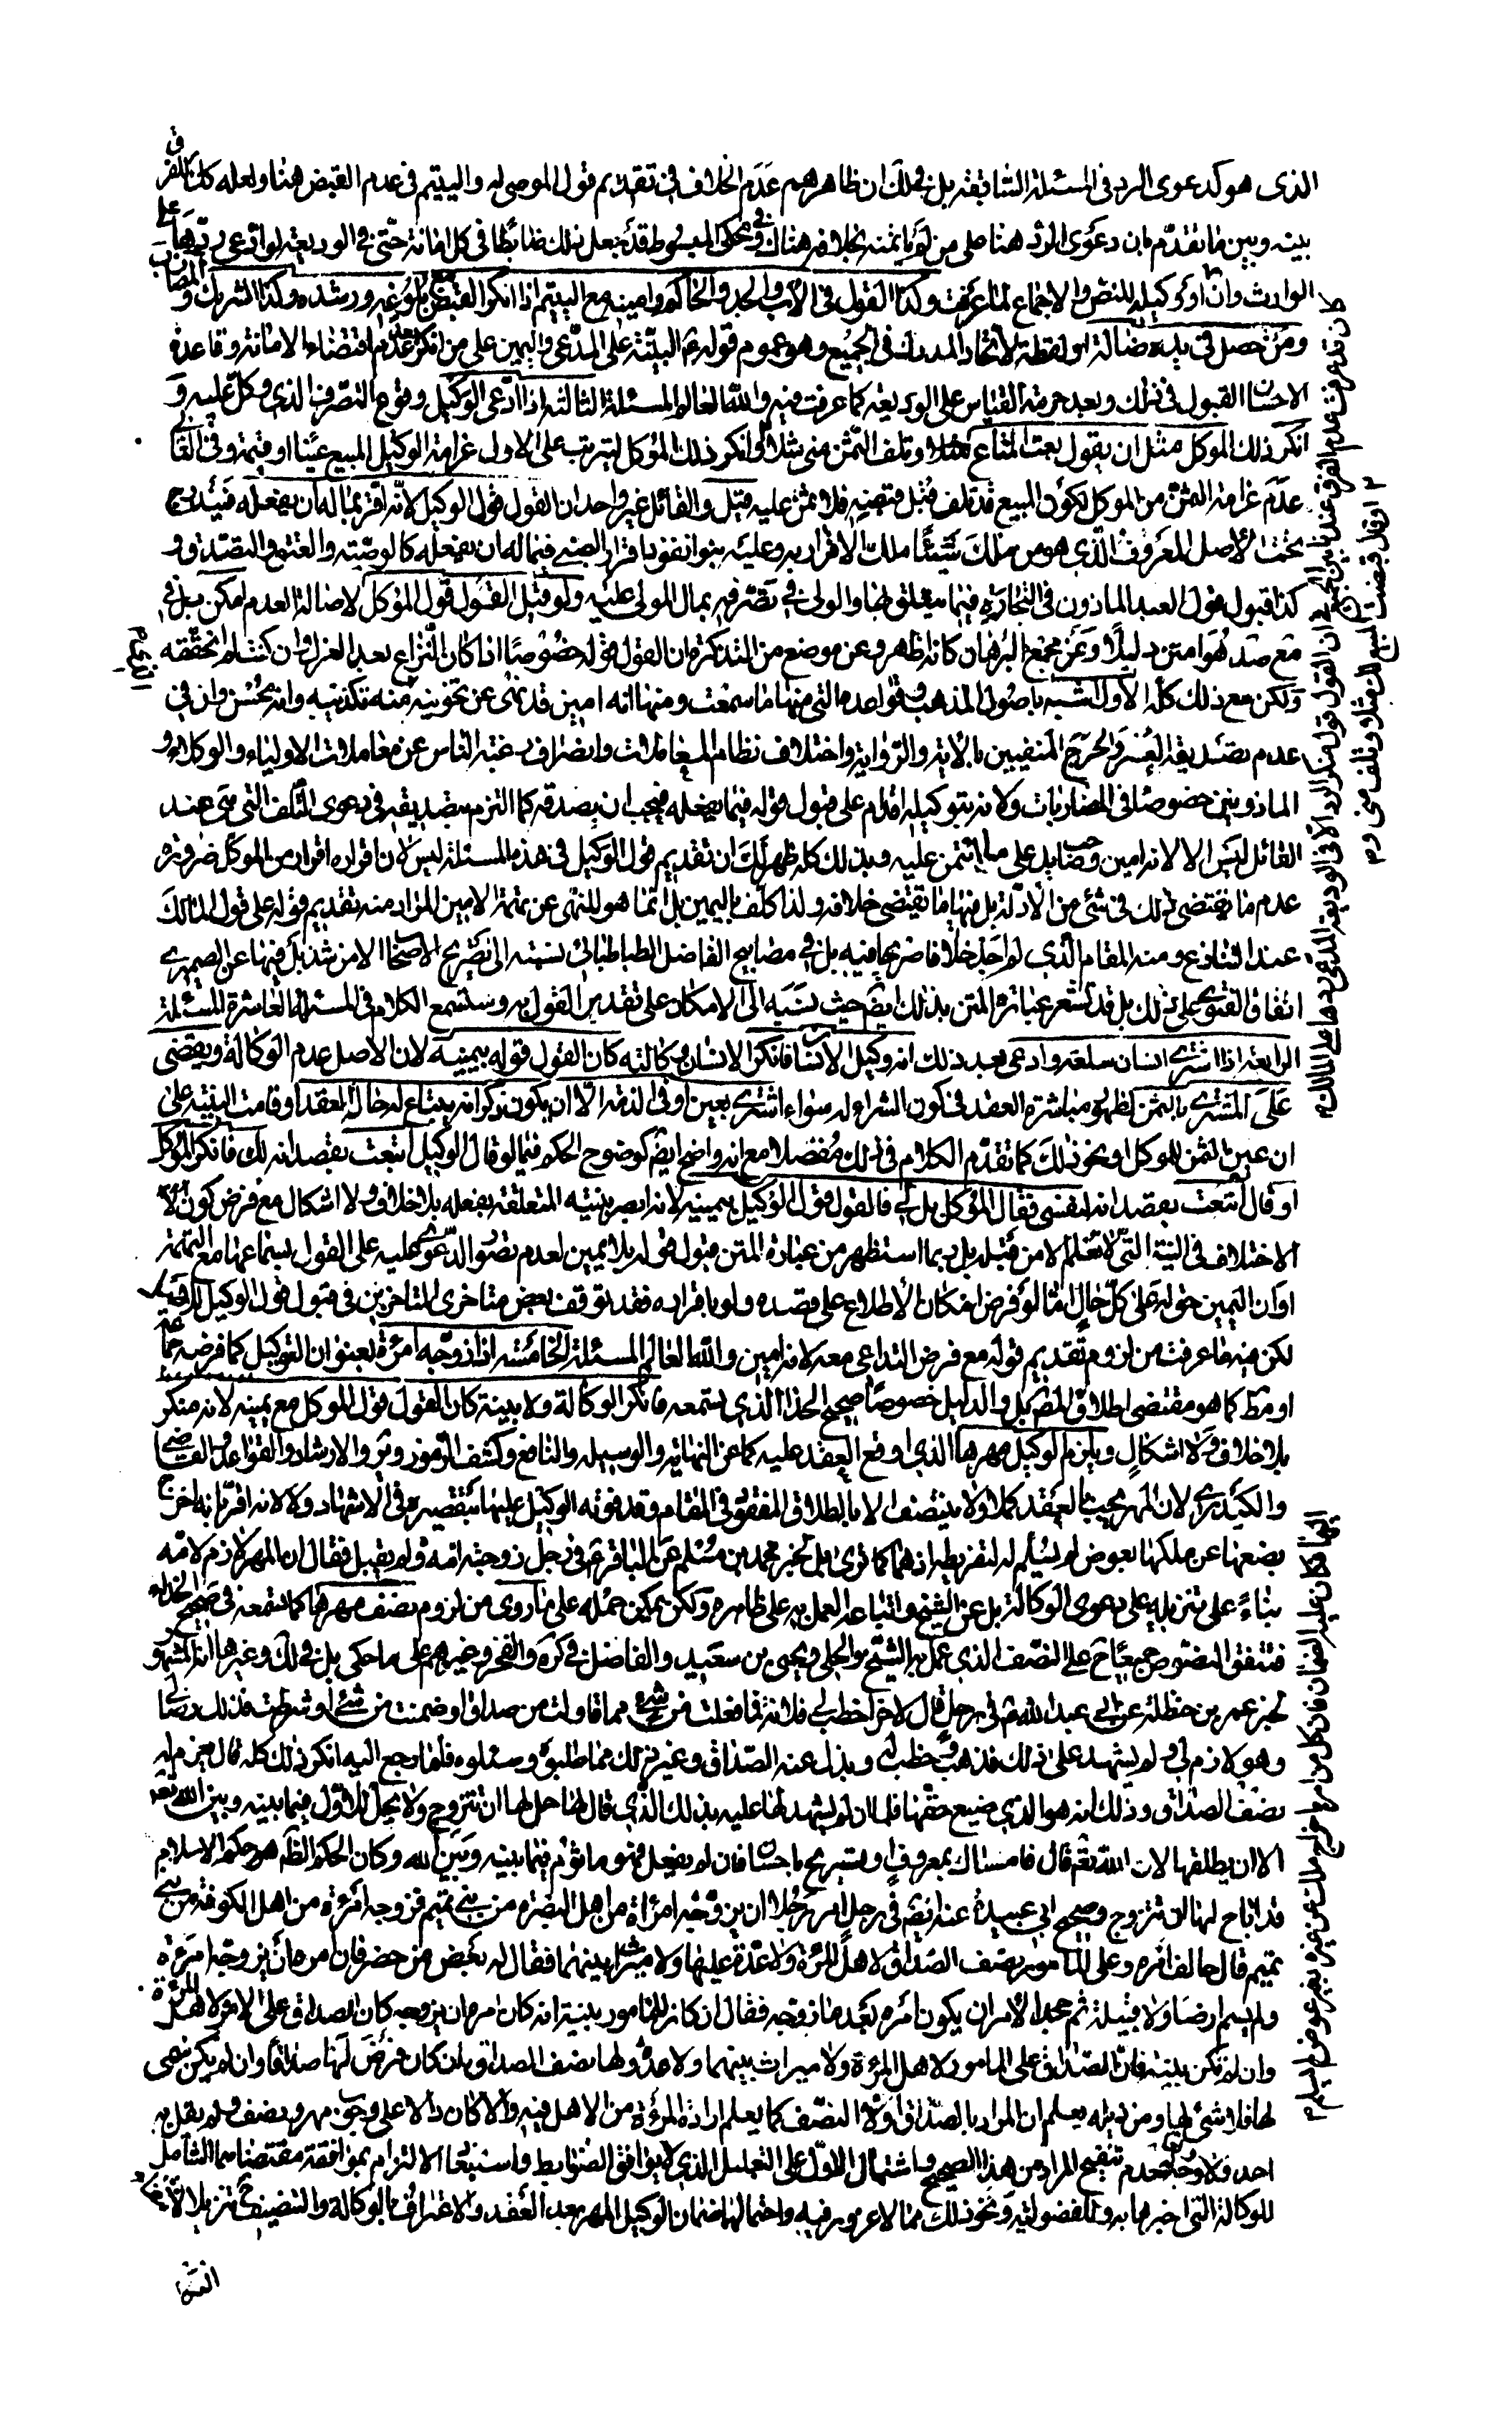 الذى هو كدعوى الرد فى المسئلة السابقة بل فى لك ان ظاهرهم عدم الخلاف فى تقديم قول الموصى له واليتيم فى عدم القبض هنا ولعله كك الفرق
بينه وبين ما تقدم بان دعوى الرد هنا على من لم ياتمنه بخلافه هناك وفى محكى المبسوط قد جعل ذلك ضابطا فى كل امانة حتى فى الوديعة لو ادعى ردها على
الوارث وان وكيله للنص والاجماع لما عرفت وكذا القول فى الاب والجد والحاكم وامينه مع اليتيم اذا انكر القبض بلوغه ورشده وكذا الشريك والمضارب
ومن حصل فى يده ضالة او لقطة لاتحاد المدرك فى الجميع وهو عموم قوله البينة على المدعى واليمين على من انكر وعدم اقتضاء الامانة وقاعدة
الاحسان القبول فى ذلك وبعد حرمة القياس على الوديعة كما عرفت فيه والله العالم المسئلة الثالثة اذا ادعى الوكيل وقوع التصرف الذى وكل عليه و
انكر ذلك الموكل مثل ان يقول بعت المتاع مثلا وتلف الثمن منى مثلا وانكر ذلك الموكل ليترتب على الاول غرامة الوكيل المبيع عينا او قيمة وفى
عدم غرامة الثمن من الموكل لكون المبيع قد تلف قبل قبضه فلا ثمن عليه قيل والقائل غير واحد ان القول قول الوكيل لانه اقر بما له ان يفعله فيندرج
تحت الاصل المعروف الذى هو من ملك شيئا ملك الاقرار به وعليه بنوا نفوذ اقرار الصبى فيما له ان يفعله كالوصية والعتق والصدقة و
كذا قبول قول العبد الماذون فى التجارة فيما يتعلق بها والولى فى تصرفه بمال المولى عليه ولو قيل القول قول الموكل لاصالة العدم امكن بل فى
ولكن مع ذلك كله الاول اشبه باصول المذهب وقواعده التى منها ما سمعت ومنها انه امين قد نهى عن تخوينه منه تكذيبه وانه محسن وان فى
عدم تصديقه العسر والحرج المنفيين بالاية والرواية واختلاف نظام المعاملات وانصراف رغبة الناس عن معاملات الاولياء والوكلاء و
الماذونين خصوصا فى المضاربات ولانه بتوكيله اقدام على قبول قوله فيما يفعله فيجب ان يصدقه كما التزم بتصديقه فى دعوى التلف التى هى عند
القائل ليس الا لانه امين وبذلك كله ظهر لك ان تقديم قول الوكيل فى هذه المسئلة ليس لان اقراره اقرار من الموكل ضرورة
عدم ما يقتضى ذلك فى شئ من الادلة بل فيها ما يقتضى خلافه ولذا كلف باليمين بل انما هو للنهى عن تهمة الامين المراد منه تقديم قوله على قول المالك
عند التنازع ومنه المقام الذى لم اجد خلافا صريحا فيه بل فى مصابيح الفاضل الطباطبائى نسبته الى تصريح الاصحاب الا من شذ بل فيها عن الصيمرى
اتفاق الفتوى على ذلك بل قد تشعر عبارة المتن بذلك ايضا حيث نسبه الى الامكان على تقدير القول به وستسمع الكلام فى المسئلة العاشرة المسئلة
الرابعة اذا اشترى انسان سلعة وادعى بعد ذلك انه وكيل الانسان فانكر الانسان وكالته كان القول قوله بيمينه لان الاصل عدم الوكالة ويقضى
على المشترى بالثمن لظهور مباشرة العقد فى كون الشراء له سواء اشترى بعين او فى الذمة الا ان يكون ذكر انه يبتاع له حال العقد او قامت البينة على
ان عين الثمن للموكل او نحو ذلك كما تقدم الكلام فى ذلك مفصلا مع انه واضح ايضا كوضوح الحكم فيما لو قال الوكيل ابتعت بقصد انه لك فانكر الموكل
او قال ابتعت بقصد انه لنفسى فقال الموكل بل لى فالقول قول الوكيل بيمينه لانه ابصر بنيته المتعلقة بفعله بلا خلاف ولا اشكال مع فرض كون
الاختلاف فى النية التى لا تعلم الا من قبله بل ربما استظهر من عبارة المتن قبول قوله بلا يمين لعدم تصور الدعوى عليه على القول بسماعها مع التهمة
او ان اليمين حق له على كل حال اما لو فرض امكان الاطلاع على قصده ولو باقراره فقد توقف بعض متاخرى المتاخرين فى قبول قول الوكيل
لكن فيه ما عرفت من لزوم تقديم قوله مع فرض التداعى معه لانه امين والله العالم المسئلة الخامسة اذا زوجه امرئة بعنوان التوكيل كما فرضه
او مط كما هو مقتضى اطلاق المص بل والدليل خصوصا صحيح الحذا الذى ستسمعه فانكر الوكالة ولا بينة كان القول قول الموكل مع يمينه لانه منكر
بلا خلاف ولا اشكال ويلزم الوكيل مهرها الذى اوقع العقد عليه كما عن النهاية والوسيلة والنافع وكشف الرموز والارشاد والقواعد
والكيدرى لان المهر يجب بالعقد كملا ولا ينتصف الا بالطلاق المفقود فى المقام وقد فوته الوكيل عليها بتقصيره فى الاشهاد ولانه اقر بانه اخرج
بضعها عن ملكها بعوض لم يسلم له لتفريطه اذ هما كما ترى بل لخبر محمد بن مسلم عن الباقر فى رجل زوجته امه ولم يقبل فقال ان المهر لازم لامه
بناء على تنزيله على دعوى الوكالة بل عن الشيخ واتباعه العمل به على ظاهره ولكن يمكن حمله على ما روى من لزوم نصف مهرها كما ستسمعه فى صحيح الحذاء
فتتفق النصوص جميعا على النصف الذى عمل به الشيخ والحلى ويحيى بن سعيد والفاضل فى كره والفخر وغيرهم على ما حكى بل فى لك وغيرها انه المشهور
لخبر عمر بن حنظلة عن ابى عبد الله فى رجل قال لاخر اخطب لى فلانة فما فعلت من شئ مما قاولت من صداق او ضمنت من شئ او شرطت فذلك رضا لى
وهو لازم لى ولم يشهد على ذلك فذهب وخطب له وبذل عنه الصداق وغير ذلك مما طلبوه وسئلوه فلما رجع اليه انكر ذلك كله قال يغرم لها
نصف الصداق وذلك انه هو الذى ضيع حقها فلما ان لم يشهد لها عليه بذلك الذى قال لها حل لها ان تتزوج ولا يحل للاول فيما بينه وبين الله
الا ان يطلقها لان الله تعالى قال فامساك بمعروف او تسريح باحسان فان لم يفعل فهو ماثوم فيما بينه وبين الله وكان الحكم الظاهر حكم الاسلام
قد اباح لها ان تتزوج وصحيح ابى عبيدة عنه ايضا فى رجل امر رجلا ان يزوجه امرأة من اهل البصرة من بنى تميم فزوجه امرئة من اهل الكوفة من بنى
تميم قال خالف امره وعلى المامور نصف الصداق لاهل المرئة ولا عدة عليها ولا ميراث بينهما فقال له بعض من حضر فان امره ان يزوجه امرئة
ولم يسم ارضا ولا قبيلة ثم جحد الامر ان يكون امره بعد ما زوجه فقال ان كان للمامور بينة انه كان امره ان يزوجه كان الصداق على الامر لاهل المرئة
وان لم تكن بينة فان الصداق على المامور لاهل المرئة ولا ميراث بينهما ولا عدة ولها نصف الصداق ان كان فرض لها صداقا وان لم يكن سمى
لها فلا شئ لها ومن ذيله يعلم ان المراد بالصداق اولا النصف كما يعلم ارادة المرؤة من الاهل فيه والا كان دالا على وجوب مهر ونصف ولم يقل به
احد ولا وجه لعدم تنقيح المراد من هذا الصحيح واشتمال الاول على التعليل الذى لا يوافق الضوابط واستبعاد الالتزام بموافقة مقتضاهما الشامل
للوكالة التى اخبرها به وللفضولية ونحو ذلك مما لا غرور فيه واحتمالهما ضمان الوكيل المهر بعد العقد والاعتراف بالوكالة والتنصيف تنزيلا